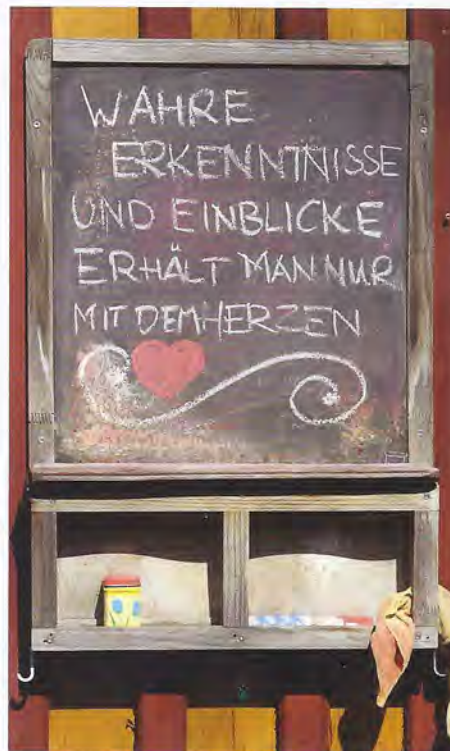 WAHRE
ERKENNTNISSE
UND EINBLICKE
ERHÄLT MAN NUR
MIT DEM HERZEN